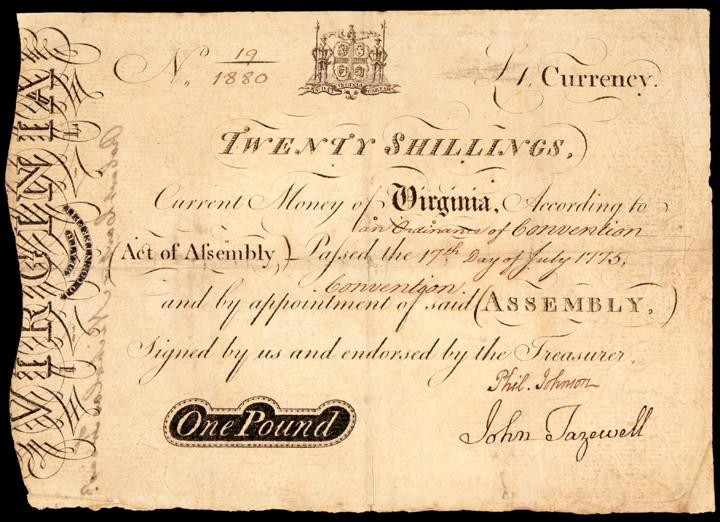 No. 19
1880
EN DAT VIRGINIA QUARTAM
£1, Currency.
TWENTY SHILLINGS,
Current Money of Virginia, According to
an Ordinance of Convention
(Act of Assembly) Passed the 17th Day of July 1775,
Convention
and by appointment of said (ASSEMBLY,)
Signed by us and endorsed by the Treasurer,
Phil. Johnson
One Pound
John Tazewell
VIRGINIA